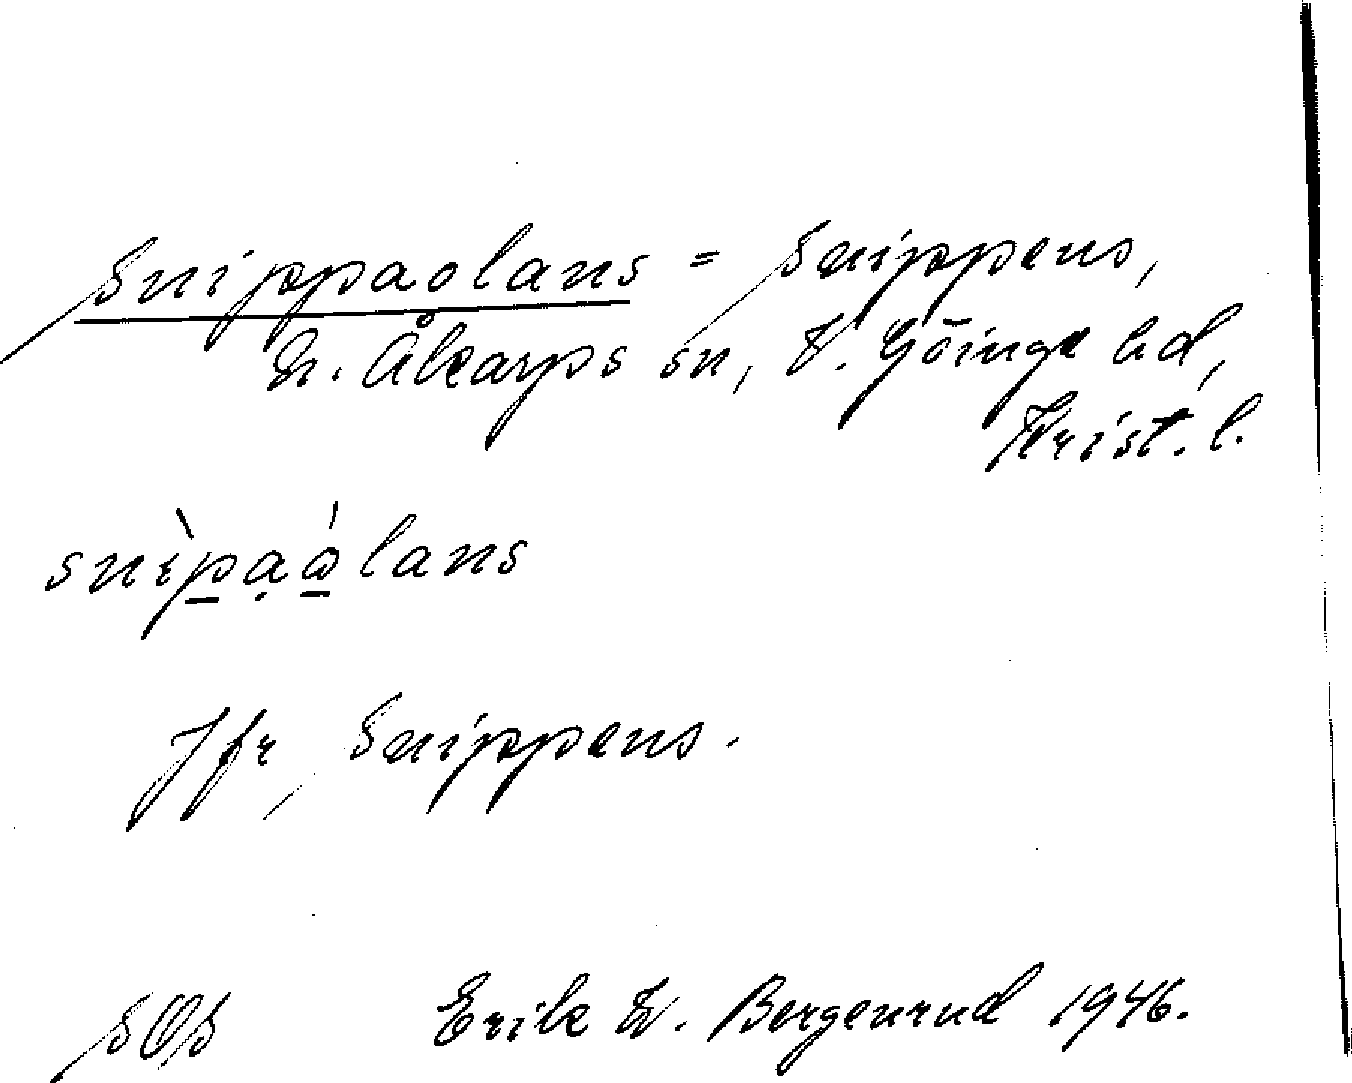 Snippaolans = Snippens,
N. Åkarps sn, V. Göinge hd,
Krist. l.
snìpạålans
Jfr, Snippens.
SOS Erik W. Bergenrud 1946.